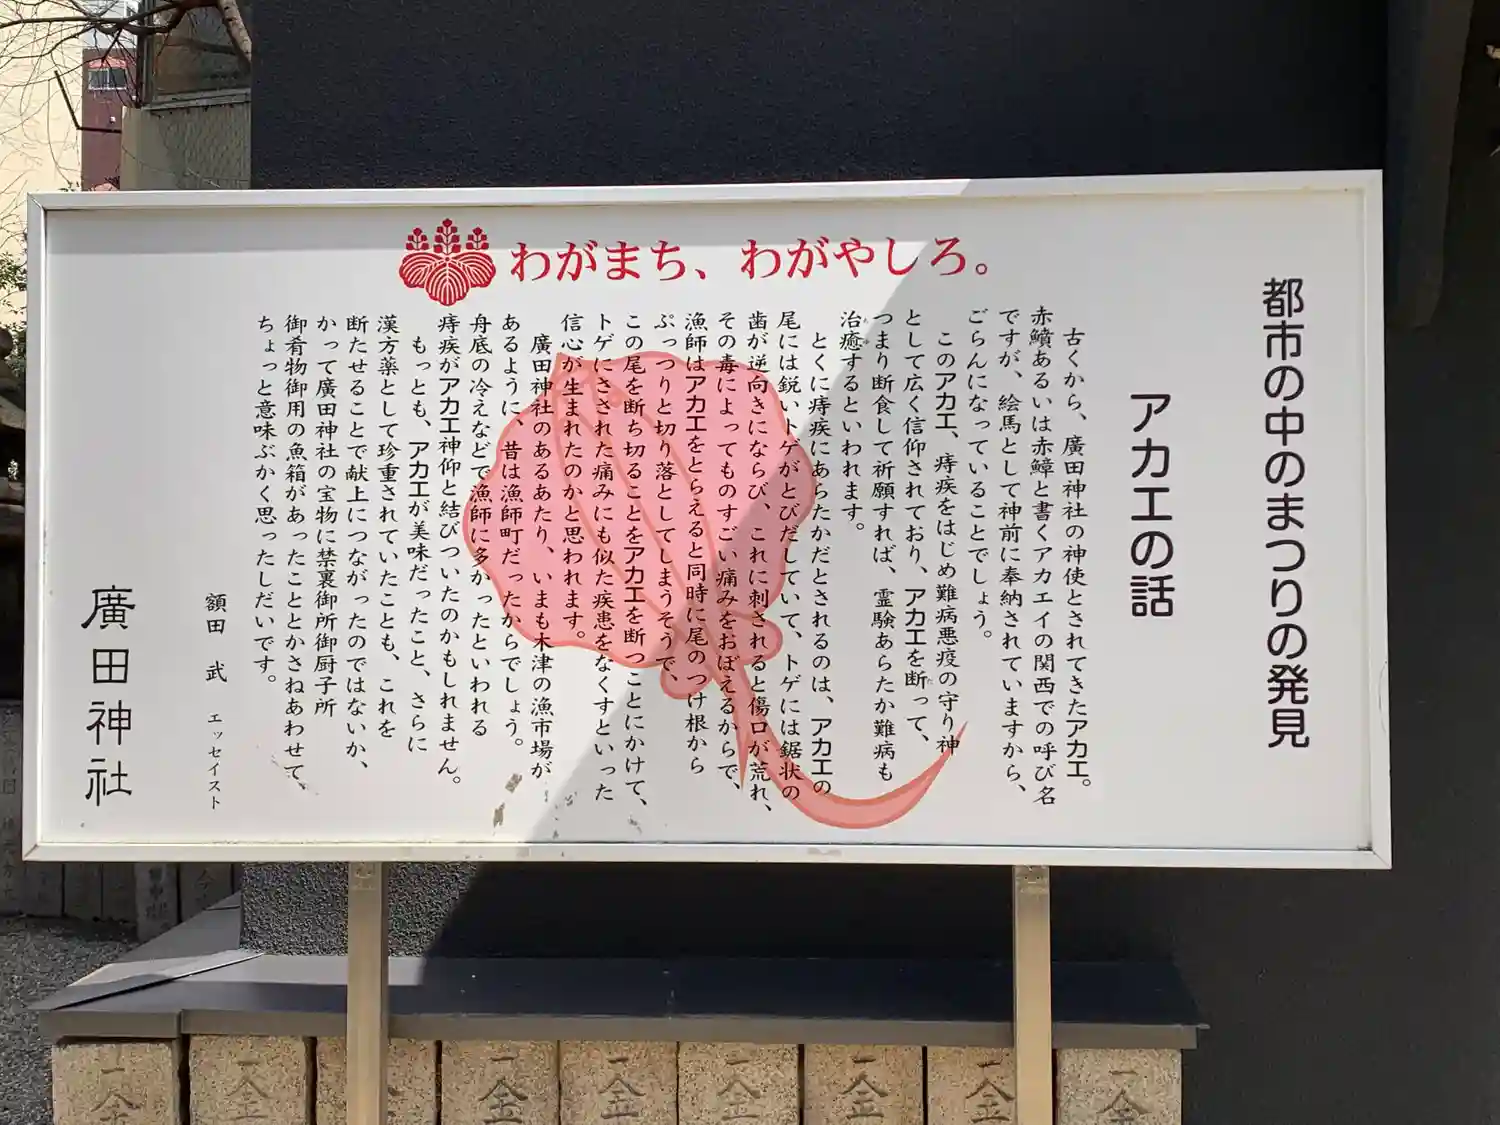 わがまち、わがやしろ。
都市の中のまつりの発見
アカエの話
古くから、廣田神社の神使とされてきたアカエ。
赤鱝あるいは赤鱆と書くアカエイの関西での呼び名
ですが、絵馬として神前に奉納されていますから、
ごらんになっていることでしょう。
このアカエ、痔疾をはじめ難病悪疫の守り神
として広く信仰されており、アカエを断って、
つまり断食して祈願すれば、霊験あらたか難病も
治癒するといわれます。
とくに痔疾にあらたかだとされるのは、アカエの
尾には鋭いトゲがとびだしていて、トゲには鋸状の
歯が逆向きにならび、これに刺されると傷口が荒れ、
その毒によってものすごい痛みをおぼえるからで、
漁師はアカエをとらえると同時に尾のつけ根から
ぷっつりと切り落としてしまうそうで、
この尾を断ち切ることをアカエを断つことにかけて、
トゲにさされた痛みにも似た疾患をなくすといった
信心が生まれたのかと思われます。
廣田神社のあるあたり、いまも木津の漁市場が
あるように、昔は漁師町だったからでしょう。
舟底の冷えなどで漁師に多かったといわれる
痔疾がアカエ神仰と結びついたのかもしれません。
もっとも、アカエが美味だったこと、さらに
漢方薬として珍重されていたことも、これを
断たせることで献上につながったのではないか、
かって廣田神社の宝物に禁裏御所御厨子所
御肴物御用の魚箱があったこととかさねあわせて、
ちょっと意味ぶかく思ったしだいです。
額田 武 エッセイスト
廣田神社
一金
一金
一金
一金
一金
一金
一金
一金